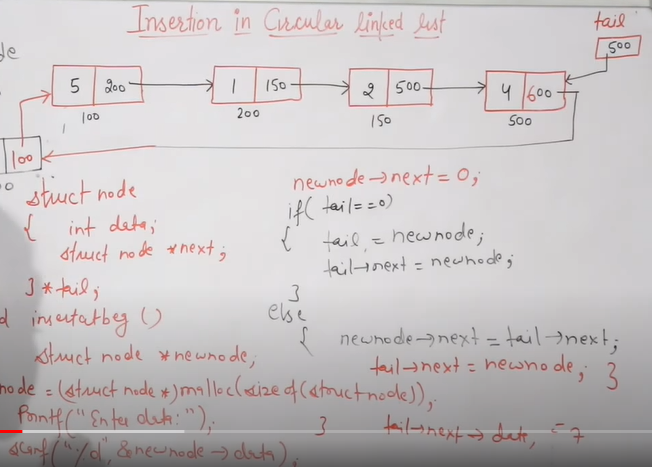 Insertion in Circular linked list
tail
500
de
5 200
1 150
2 500
4 600
100
200
150
500
100
0
struct node
{ int data;
struct node *next;
} *tail;
d insertatbeg ()
struct node *newnode;
node = (struct node*)malloc(sizeof(struct node));
Printf("Enter data:");
scanf("%d", &newnode→data);
newnode→next = 0;
if( tail==0)
{ tail = newnode;
tail→next = newnode;
}
else
{ newnode→next = tail→next;
tail→next = newnode; }
} tail→next→data, =7